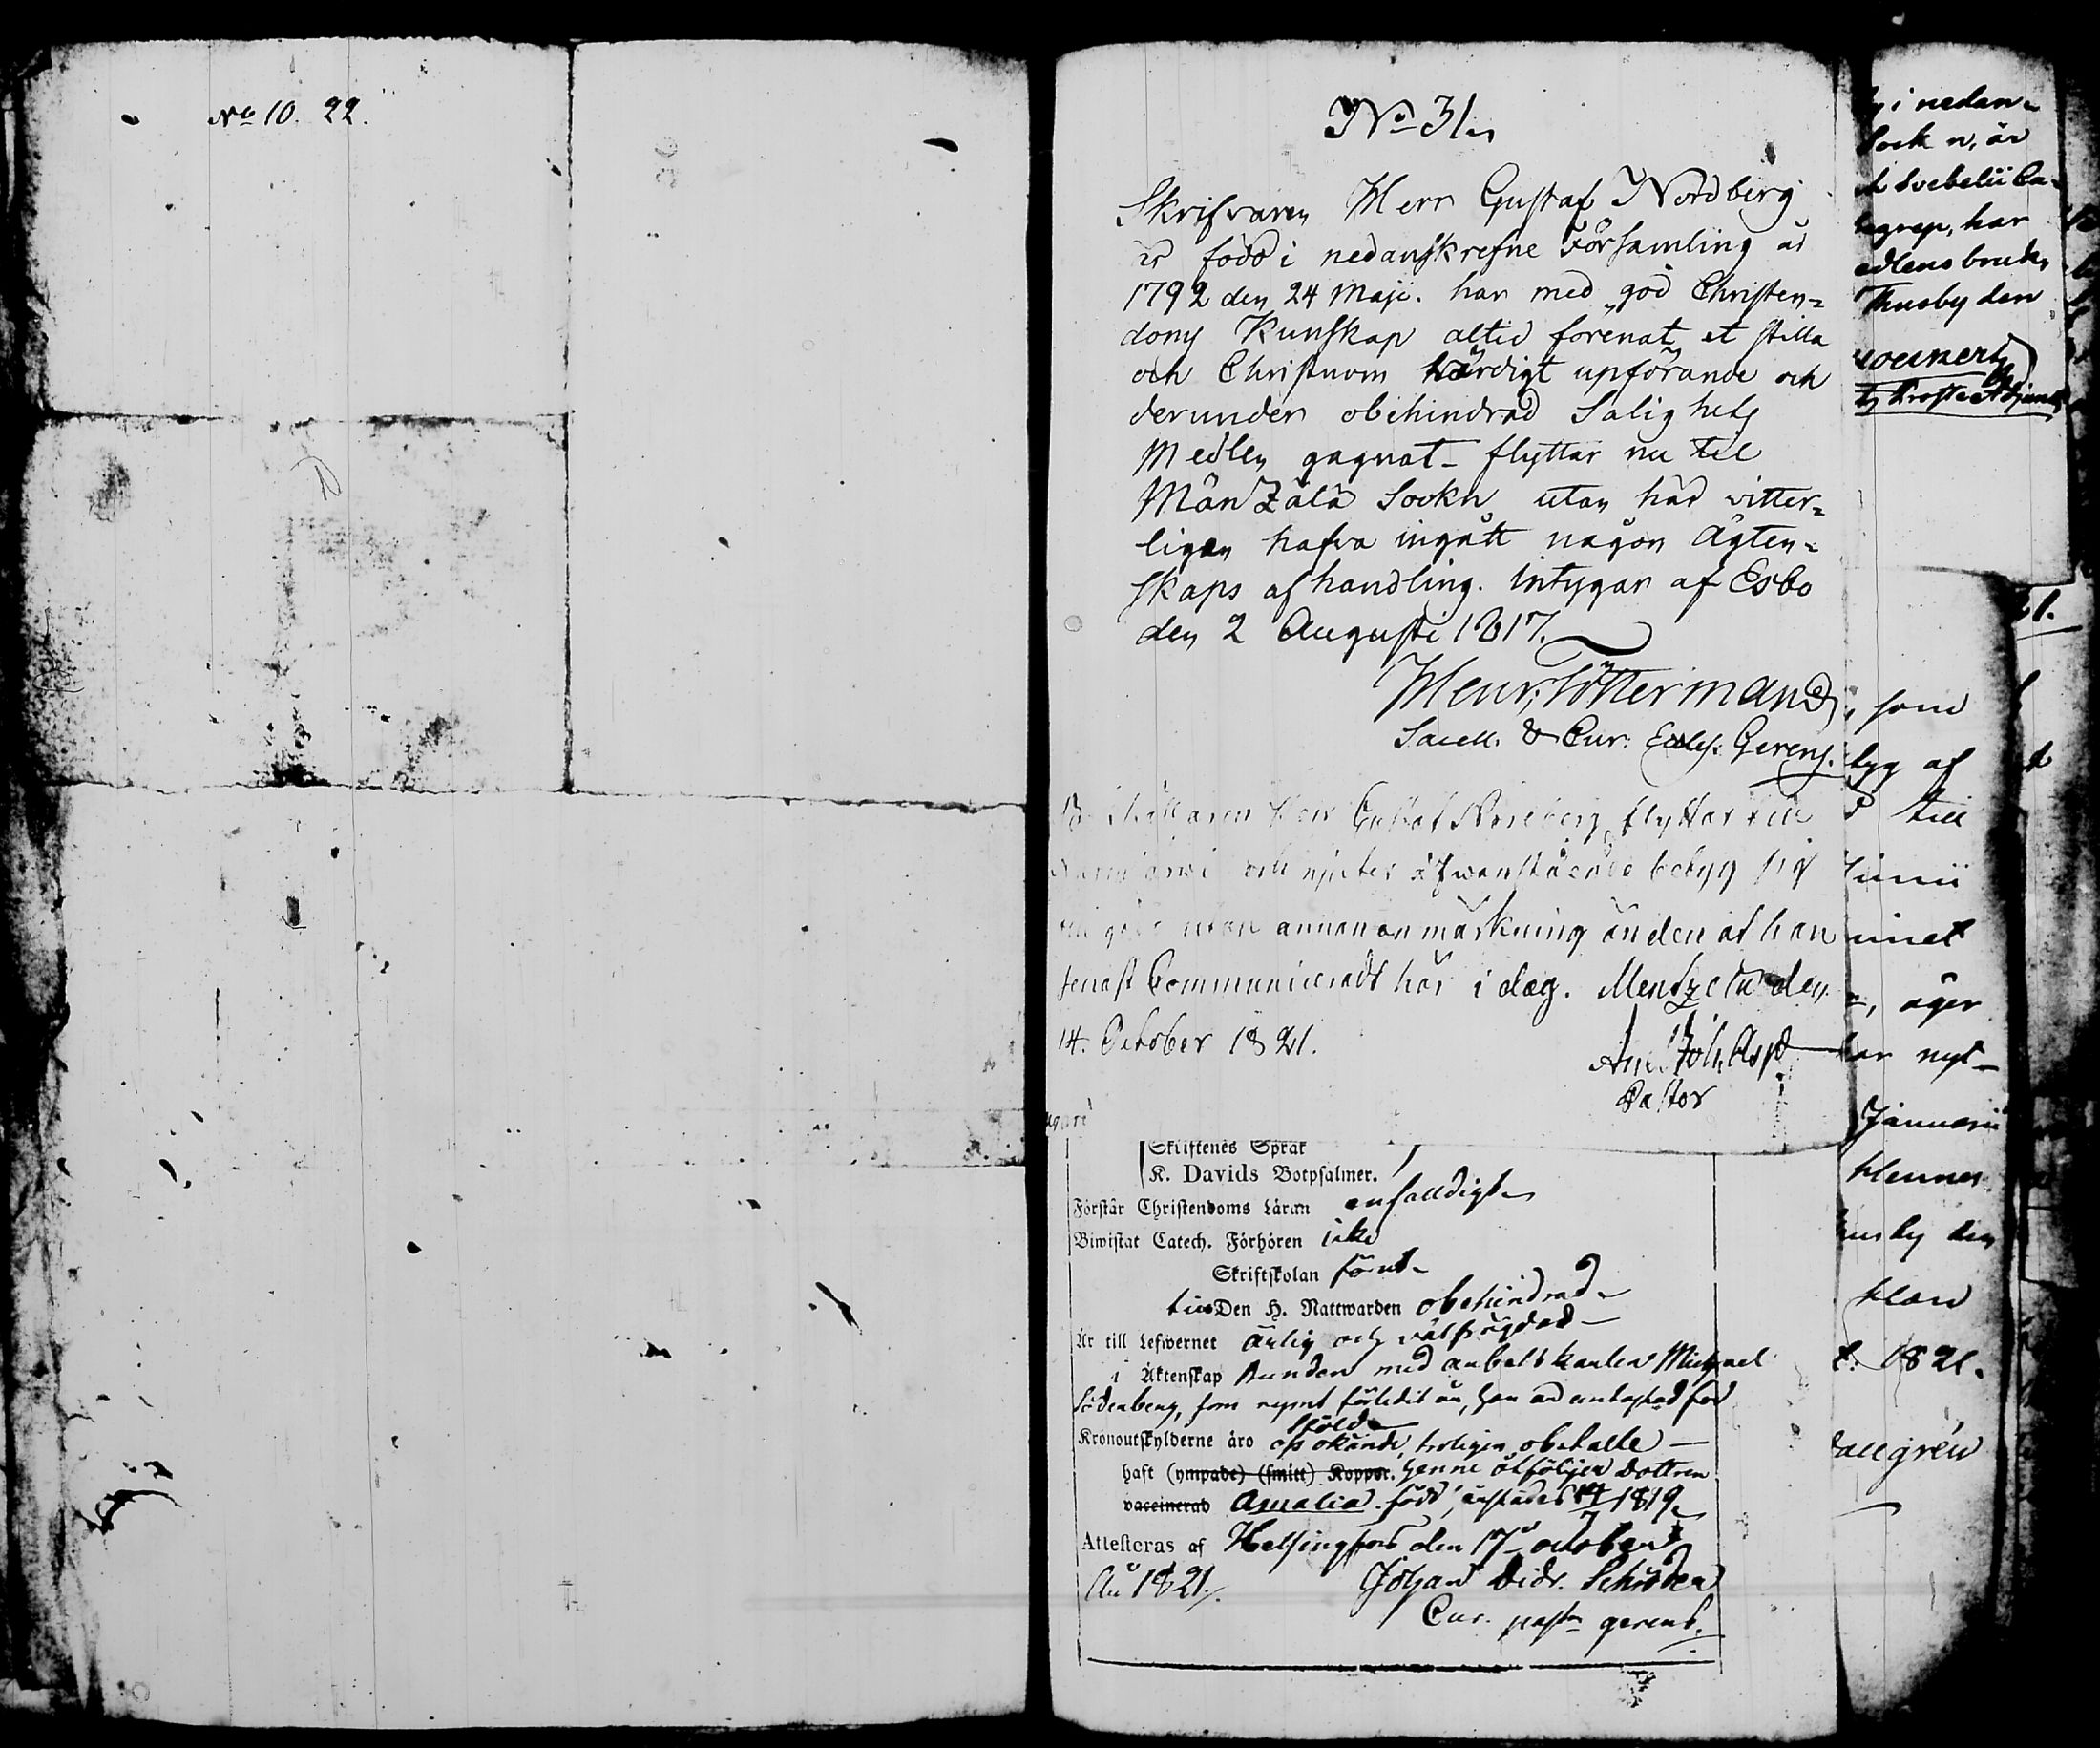 No 10. 22.
No 31.
Skrifvaren Herr Gustaf Nordberg
är född i nedanskrefne Församling år
1792 den 24 Maji. har med god Christen=
doms Kunskap altid förenat et stilla
och Christnom värdigt upförande och
derunder obehindrad Salighets
Medlen gagnat - flyttar nu til
Mänzälä Sockn utan här vitter=
ligen hafva ingått någon Ägten=
skaps afhandling. intygar af Esbo
den 2 Augusti 1817.
Henr. Töttermand
Sacell. & Cur. Eccles. Gerens.
Herr Gustaf Nordberg flyttar till
och njuter ofvanstående betyg sig
till godo utan annan anmärkning än den at han
senast Communicerade här i dag. Mentzelä den
14. October 1821.
And Joh. Asp
Pastor
Skriftenes Språk
K. Davids Botpsalmer.
Förstår Christendoms Läran enfalldigt
Biwistat Catech. Förhören icke
Skriftskolan förut
Den H. Nattwarden obehindrad
Är till Lefwernet ärlig och välfrägdad
i Äktenskap bunden med arbetskarlen Michael
Söderberg, som rymt förledit år, hon är antastad för
stöld
Kronoutskylderne äro oss okände, troligen obetalte
haft (ympade) (smitt) Koppor. henne åtföljer dottren
vaccinerad Amalia född, 1819
Attesteras af Helsingfors den 17 october
År 1821. Johan Didr. Schröder
Cur. past. gerens.
i nedan=
Sock n, är
Svebelii Ca=
begrep, har
edlens bruk
Thusby den
som
tyg af
till
Junii
äger
har nyt=
Januarii
Hennes
usby den
1821.